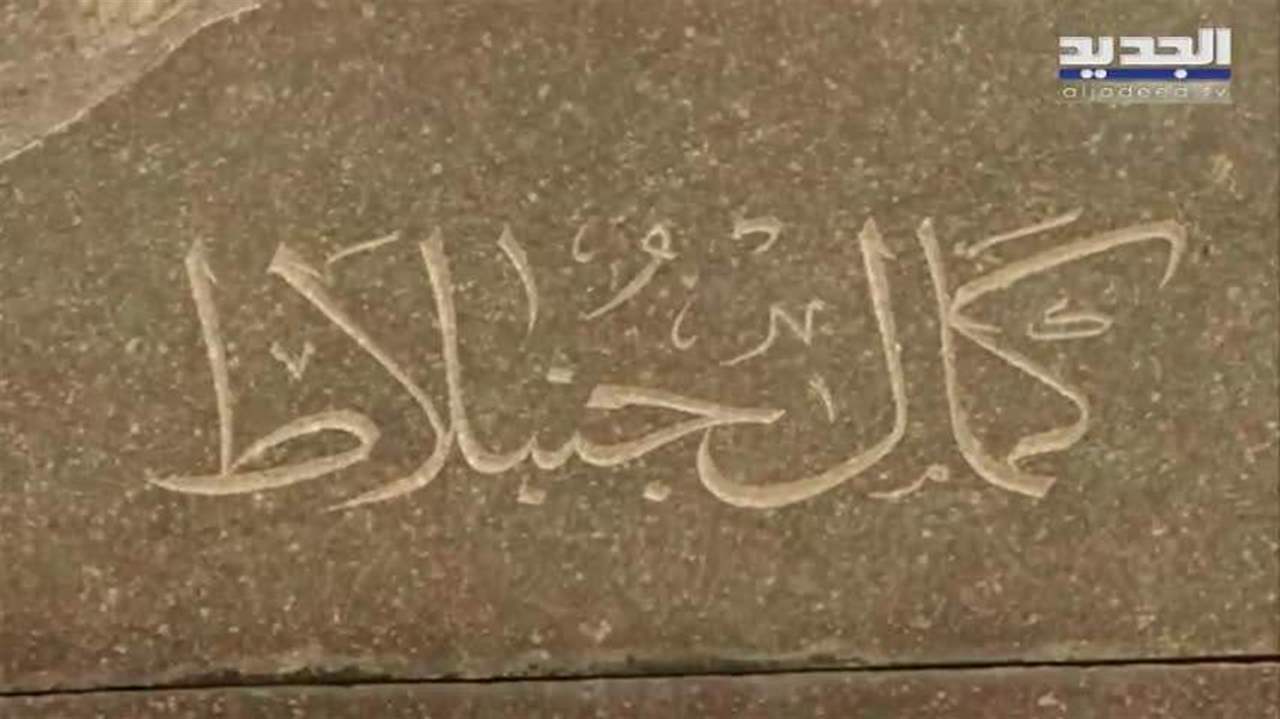 الجديد
aljadeed.tv
كمال جنبلاط